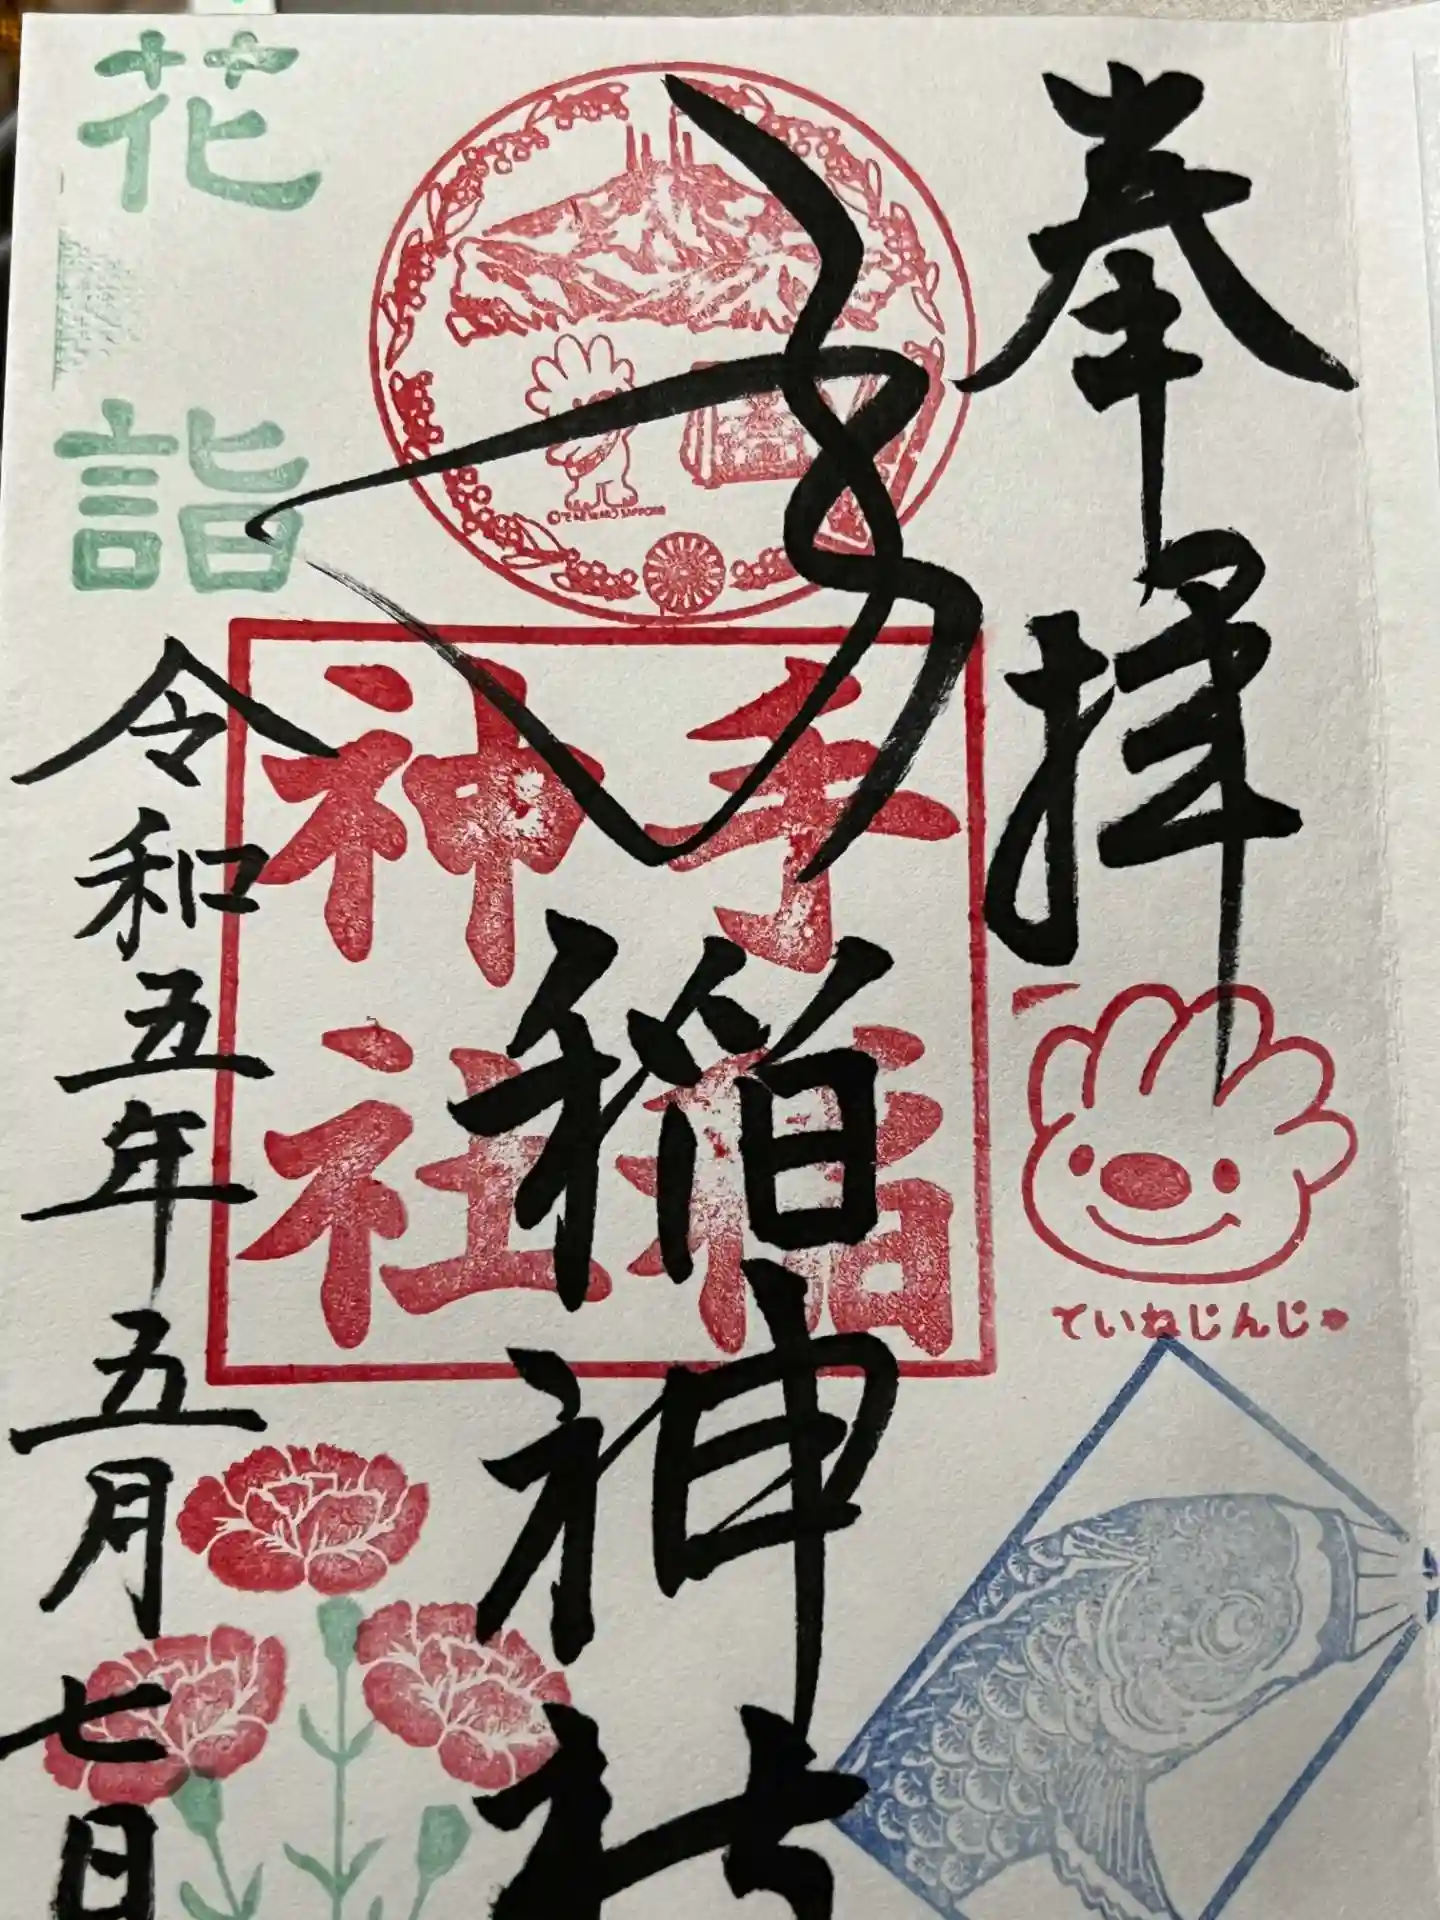 奉拝
ていねじんじゃ
手稲神社
手稲
神社
花詣
令和五年五月七日